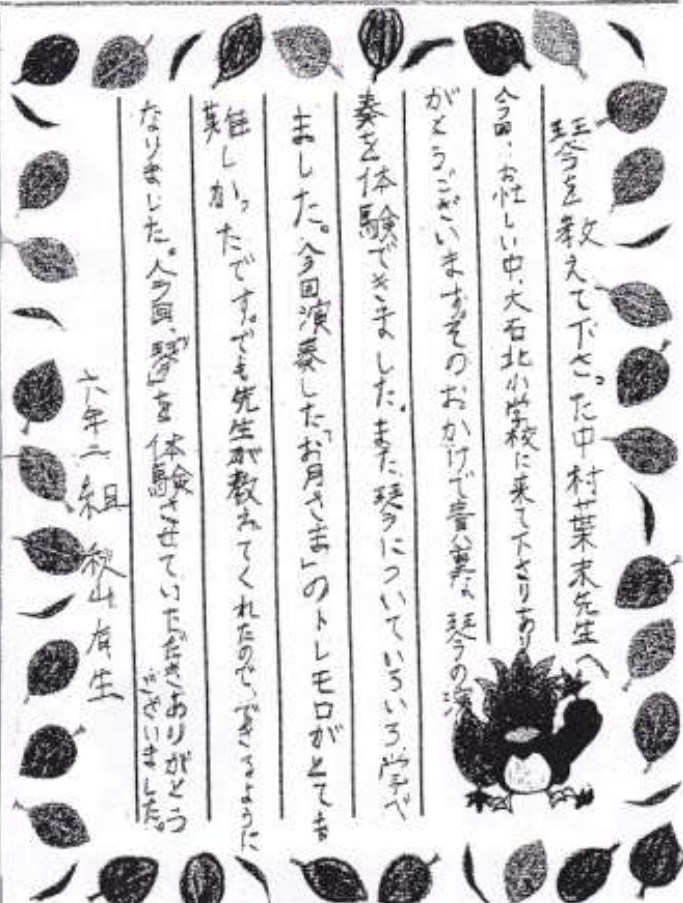 琴を教えて下さった中村葉末先生へ
今回、お忙しい中、大石北小学校に来て下さりあり
がとうございます。そのおかげで貴重な琴の演
奏を体験できました。また、琴についていろいろ学べ
ました。今回演奏した「お月さま」のトレモロがとても
難しかったです。でも先生が教えてくれたので、できるように
なりました。今回、「琴」を体験させていただきありがとう
ございました。
六年二組 秋山有生